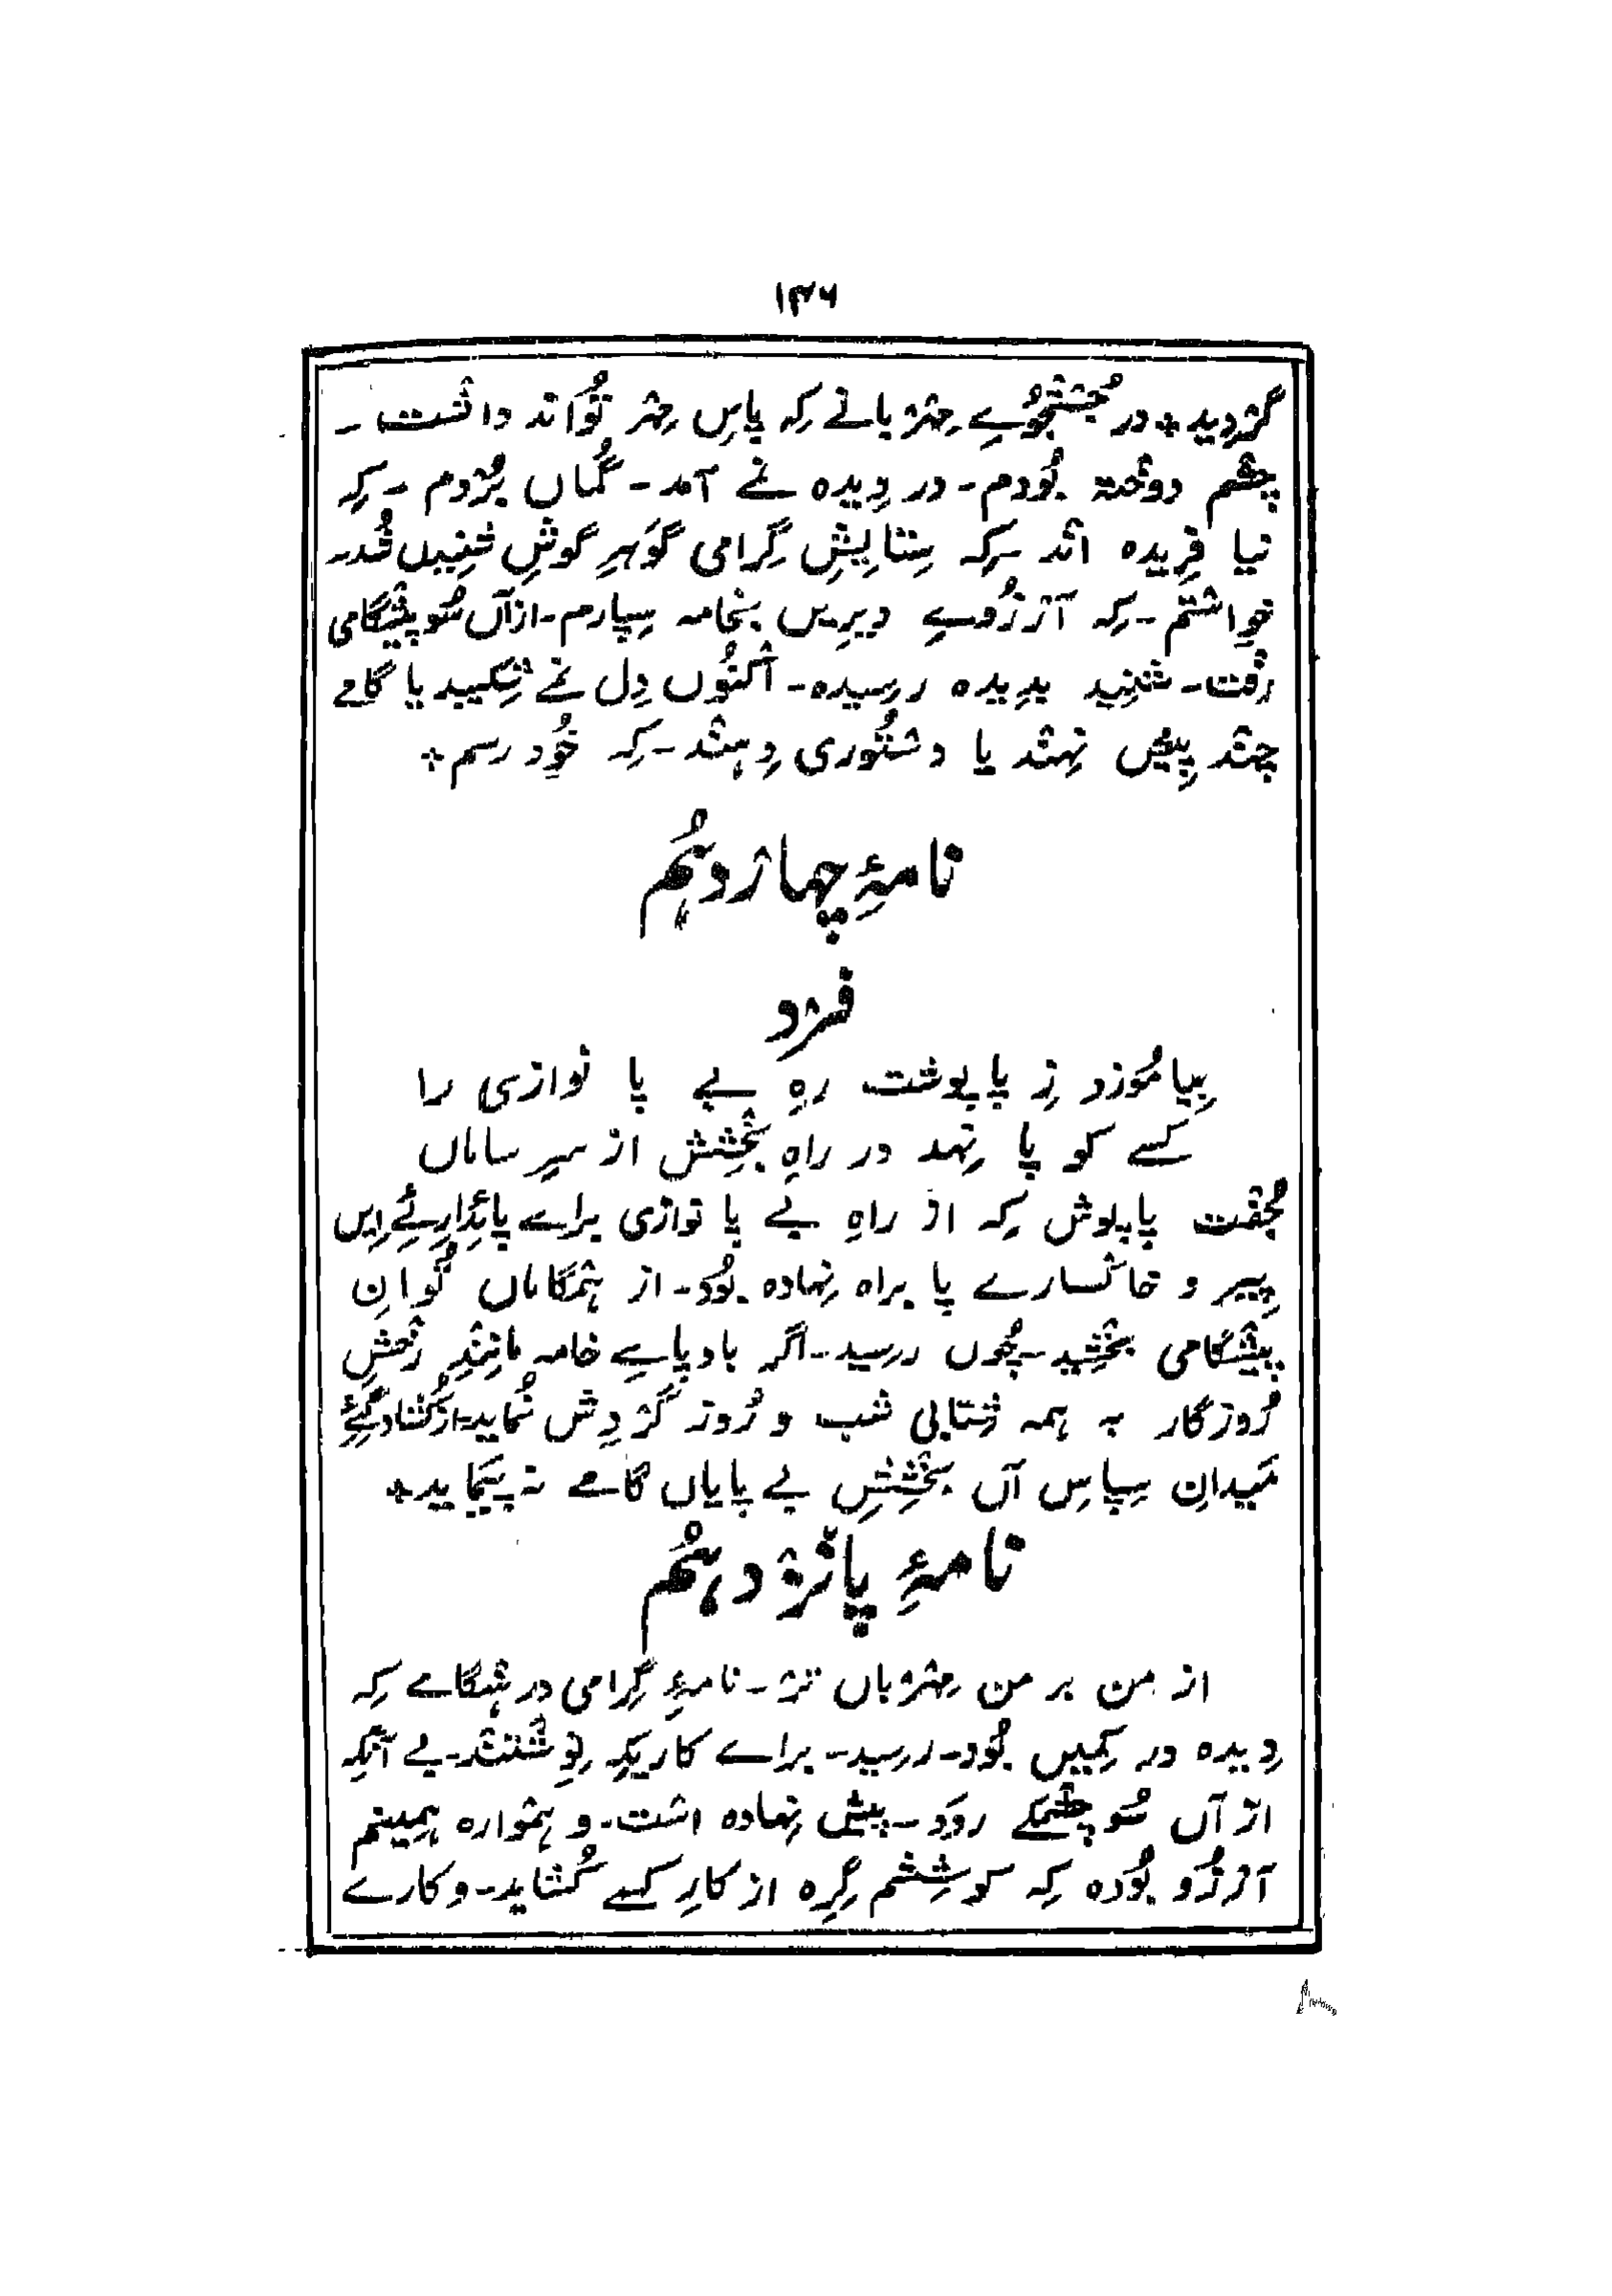 ۱۳۶
گرْدید * در جُسْتجُوے مِهْرْبانے کِہ پاسِ مِهْر تُوَانَد داشْت -
چشْم دوخْتہ بُودم - در دِیدہ نے آمد - گُماں بُرْدم - کِہ
نیا فرِیدہ انْد - کِہ سِتایِشِ گِرامی گَوہرِ گوشِ شنِیں شُد -
خواسْتم - کِہ آرْزُوے دیرِیں بخامہ سِپارم - از آں سُو پیشْگامی
رفْت - شنِید بدِیدہ رسِیدہ - اکْنُوں دِل نے شِکیبد یا گامے
چنْد پیش نِہنْد یا دسْتُوری دِہنْد - کِہ خُود رسم *
نامۂ چہارْدہُم
فرْد
بِیا مُوزد زِ پا پوشت رہِ بے پا نوازی را
کسے کو پا نِہد در راہِ بخْشِش از سرِ ساماں
جُفْت پاپوش کِہ از راہِ بے پا نوازی براے پائدارِئے ایں
پِیر و خاکْسارے پا براہ نِہادہ بُود - از ہمْگاماں گُوانِ
پیشْگامی بخْشِید - چُوں ررسید - اگر بادپاے خامہ مانِنْدِ رخْشِ
رُوزگار بہ ہمہ شِتابی شب و رُوز گرْدِش نُماید - از کُشادگِئے
مَیدانِ سِپاسِ آں بخْشِشِ بے پایاں گامے نہ پَیماید *
نامۂ پانْزْدہُم
از من بر من مِهْرْباں تر - نامۂ گِرامی در ہنْگامے کِہ
دِیدہ در کمِیں بُود - ررسید - براے کاریکہ نِوِشْتنْد - بے آنکہ
از آں سُو چشْمکے روَد - پیش نِہادہ اسْت - و ہمْوارہ ہمِینم
آرْزُو بُودہ کِہ کوشِشم گِرِہ از کارِ کسے کُشاید - و کارے